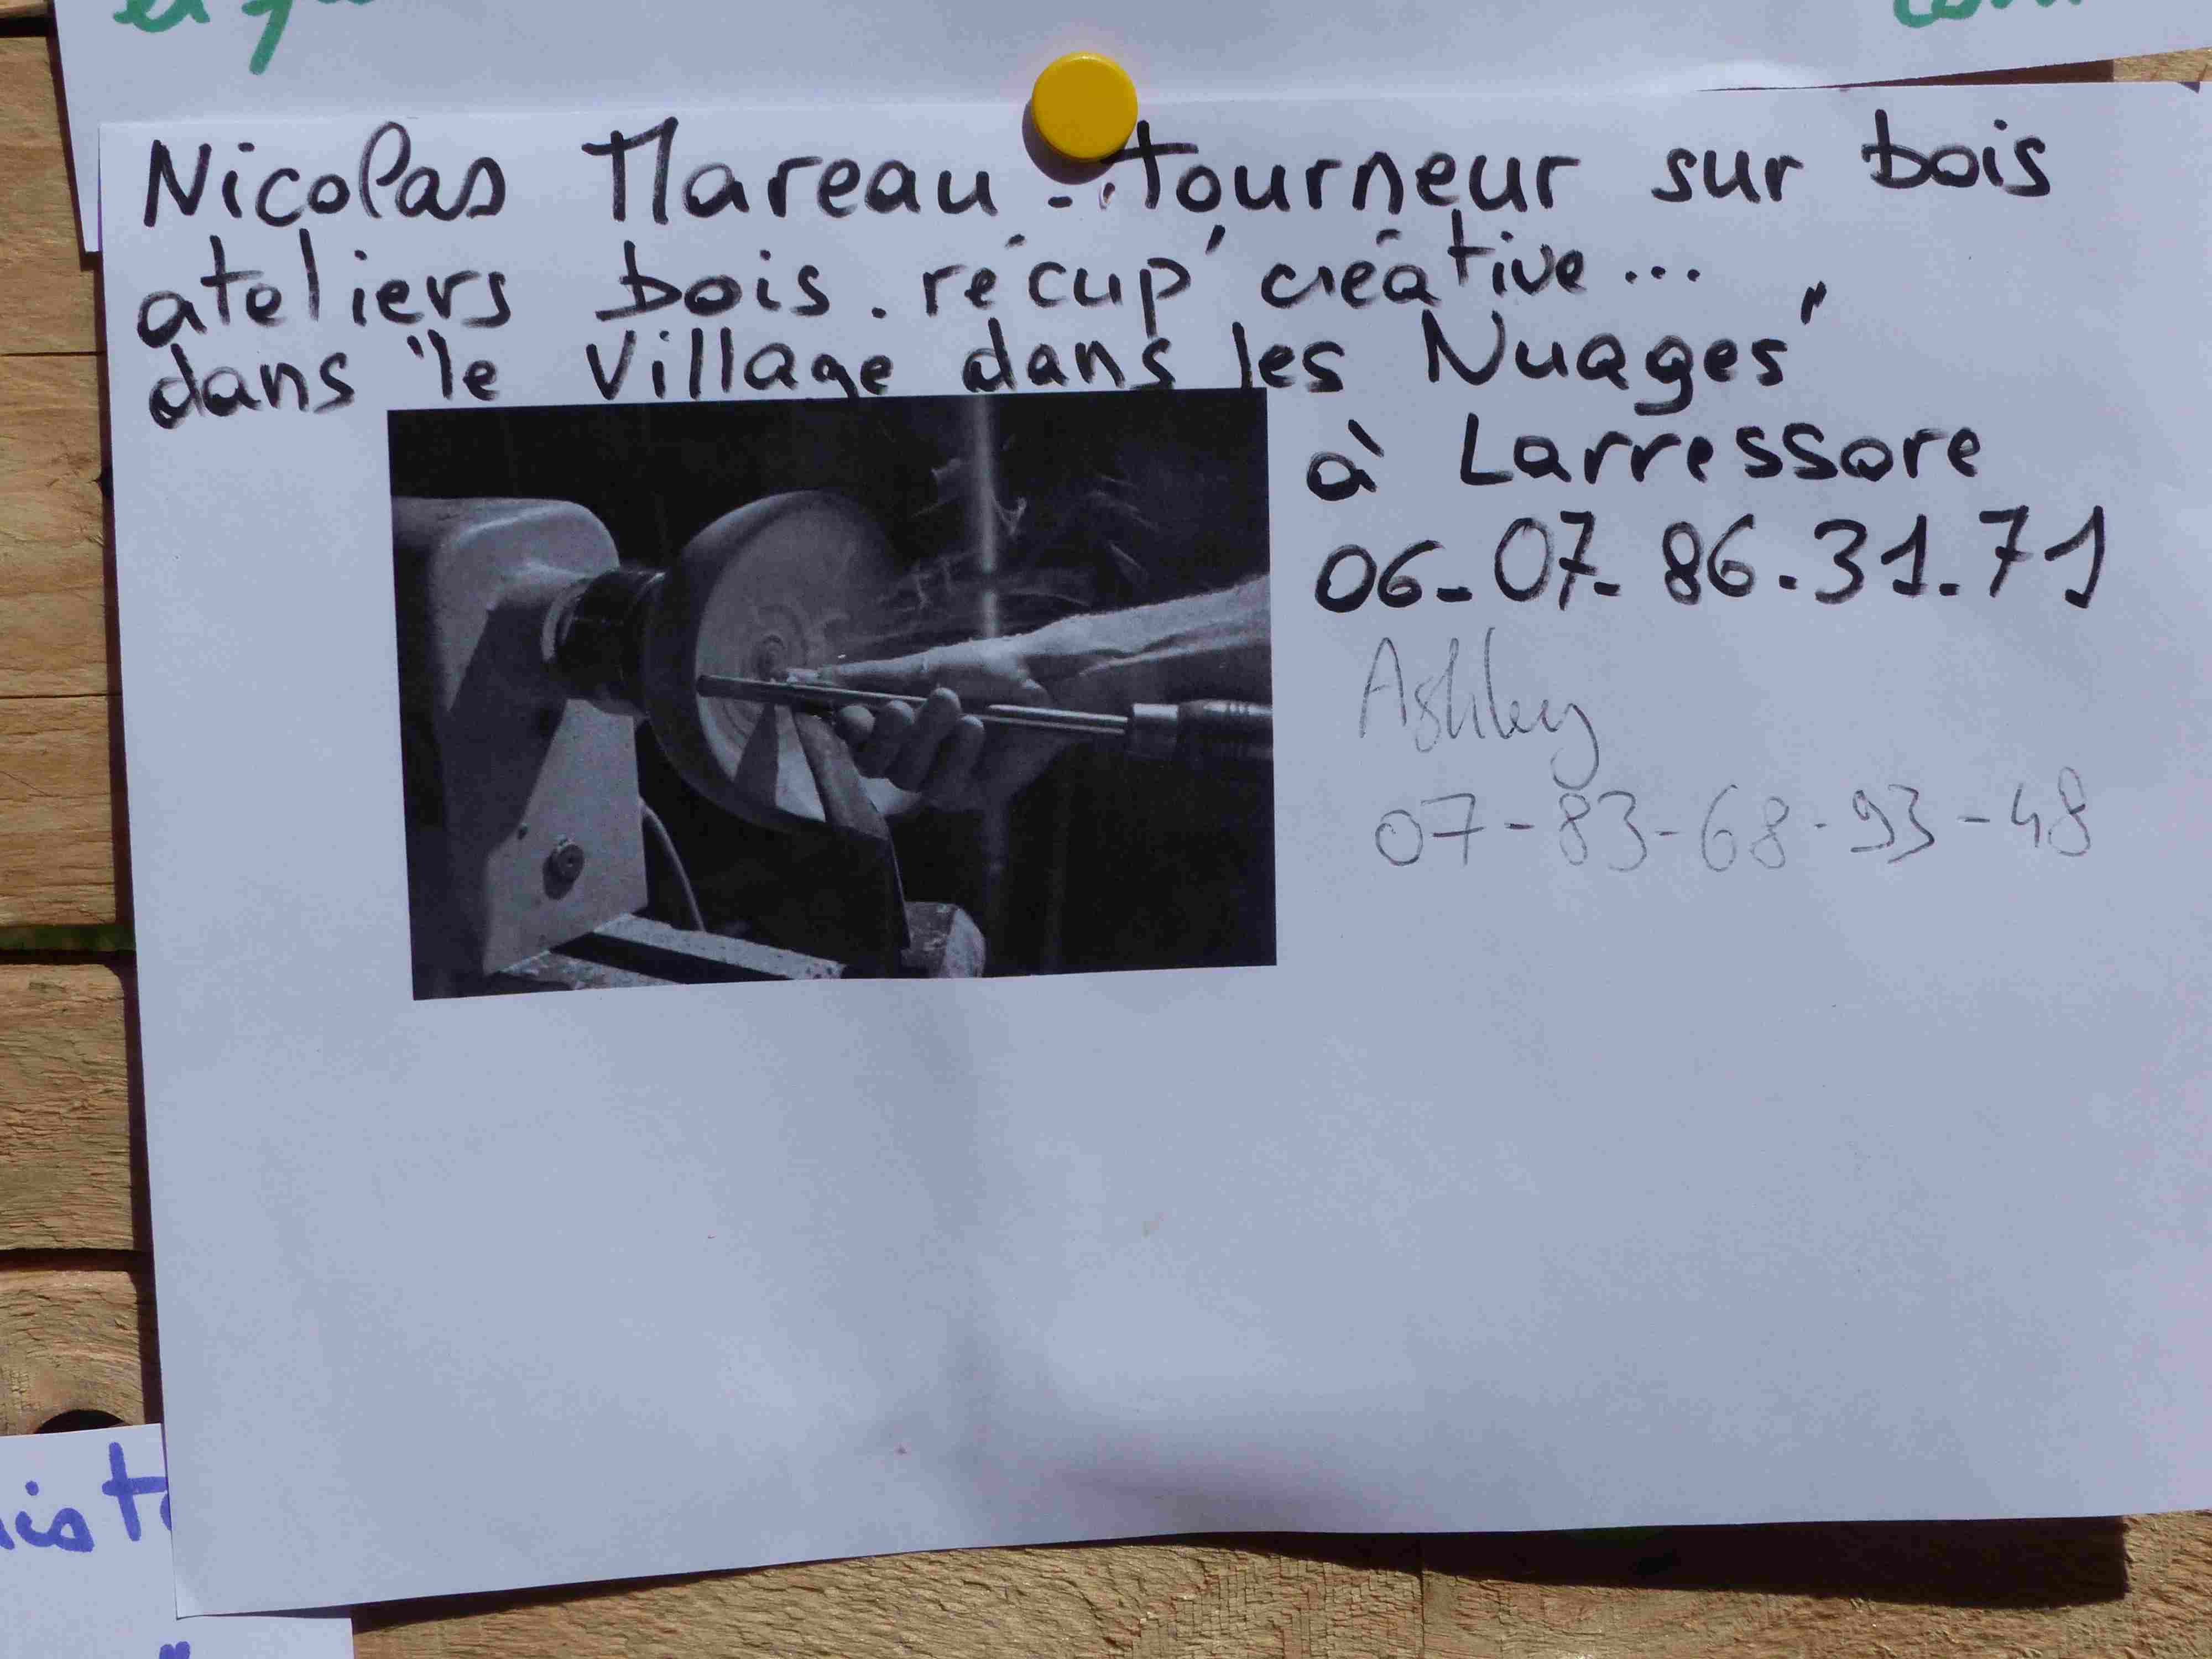 Nicolas Mareau - tourneur sur bois
ateliers bois. récup' créative...
dans "le Village dans les Nuages"
à Larressore
06-07-86-31-71
Ashley
07-83-68-93-48